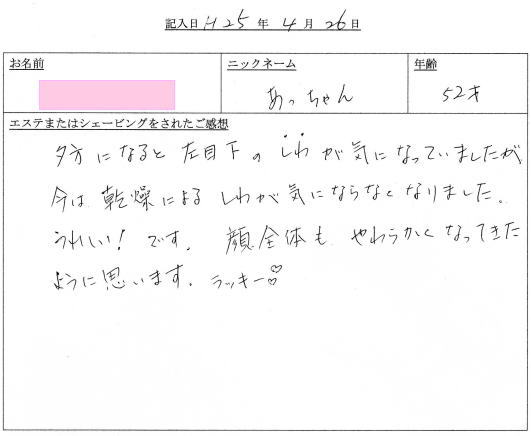 記入日 H25 年 4 月 26 日
お名前 ニックネーム 年齢
あっちゃん 52才
エステまたはシェービングをされたご感想
夕方になると左目下のしわが気になっていましたが
今は乾燥によるしわが気にならなくなりました。
うれしい!です。顔全体もやわらかくなってきた
ように思います。ラッキー♡♡